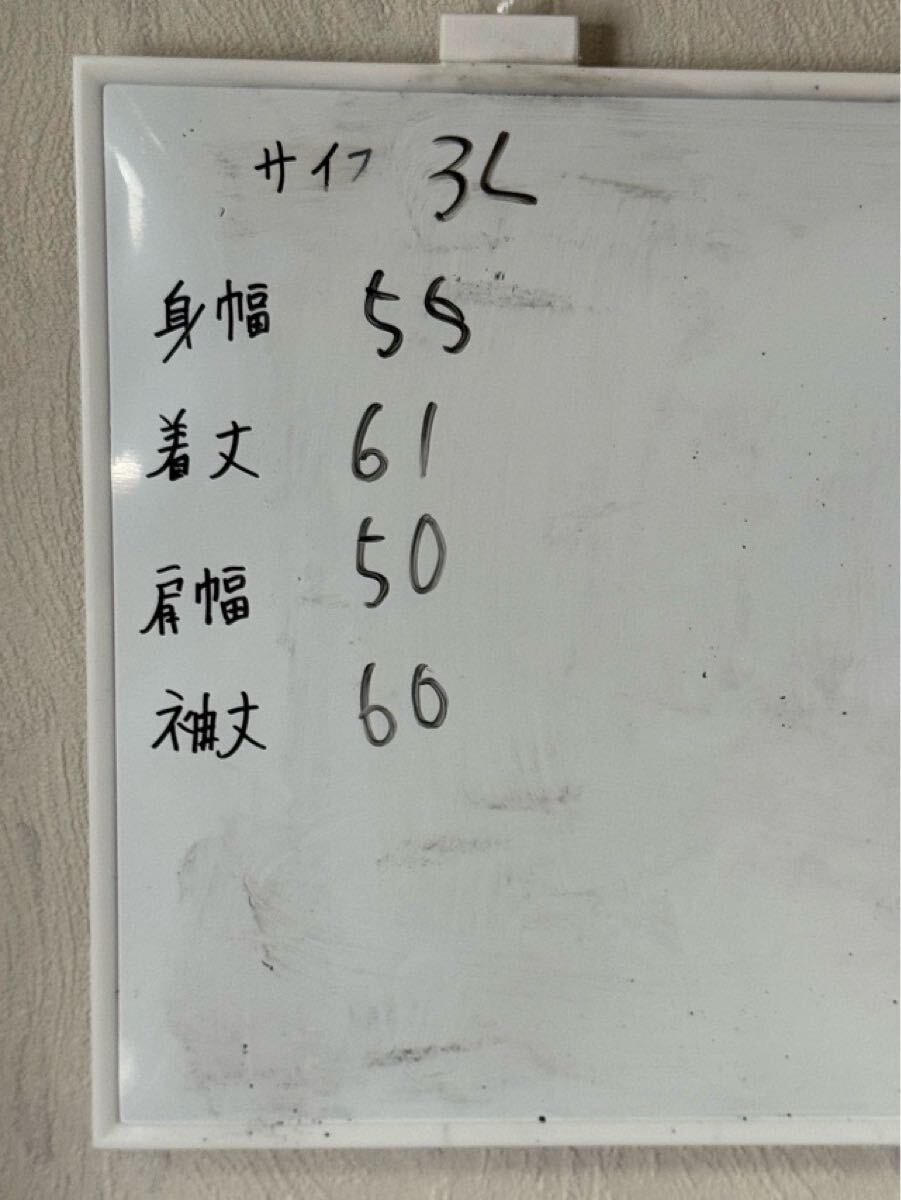 サイフ 3L
身幅 55
着丈 61
肩幅 50
袖丈 60